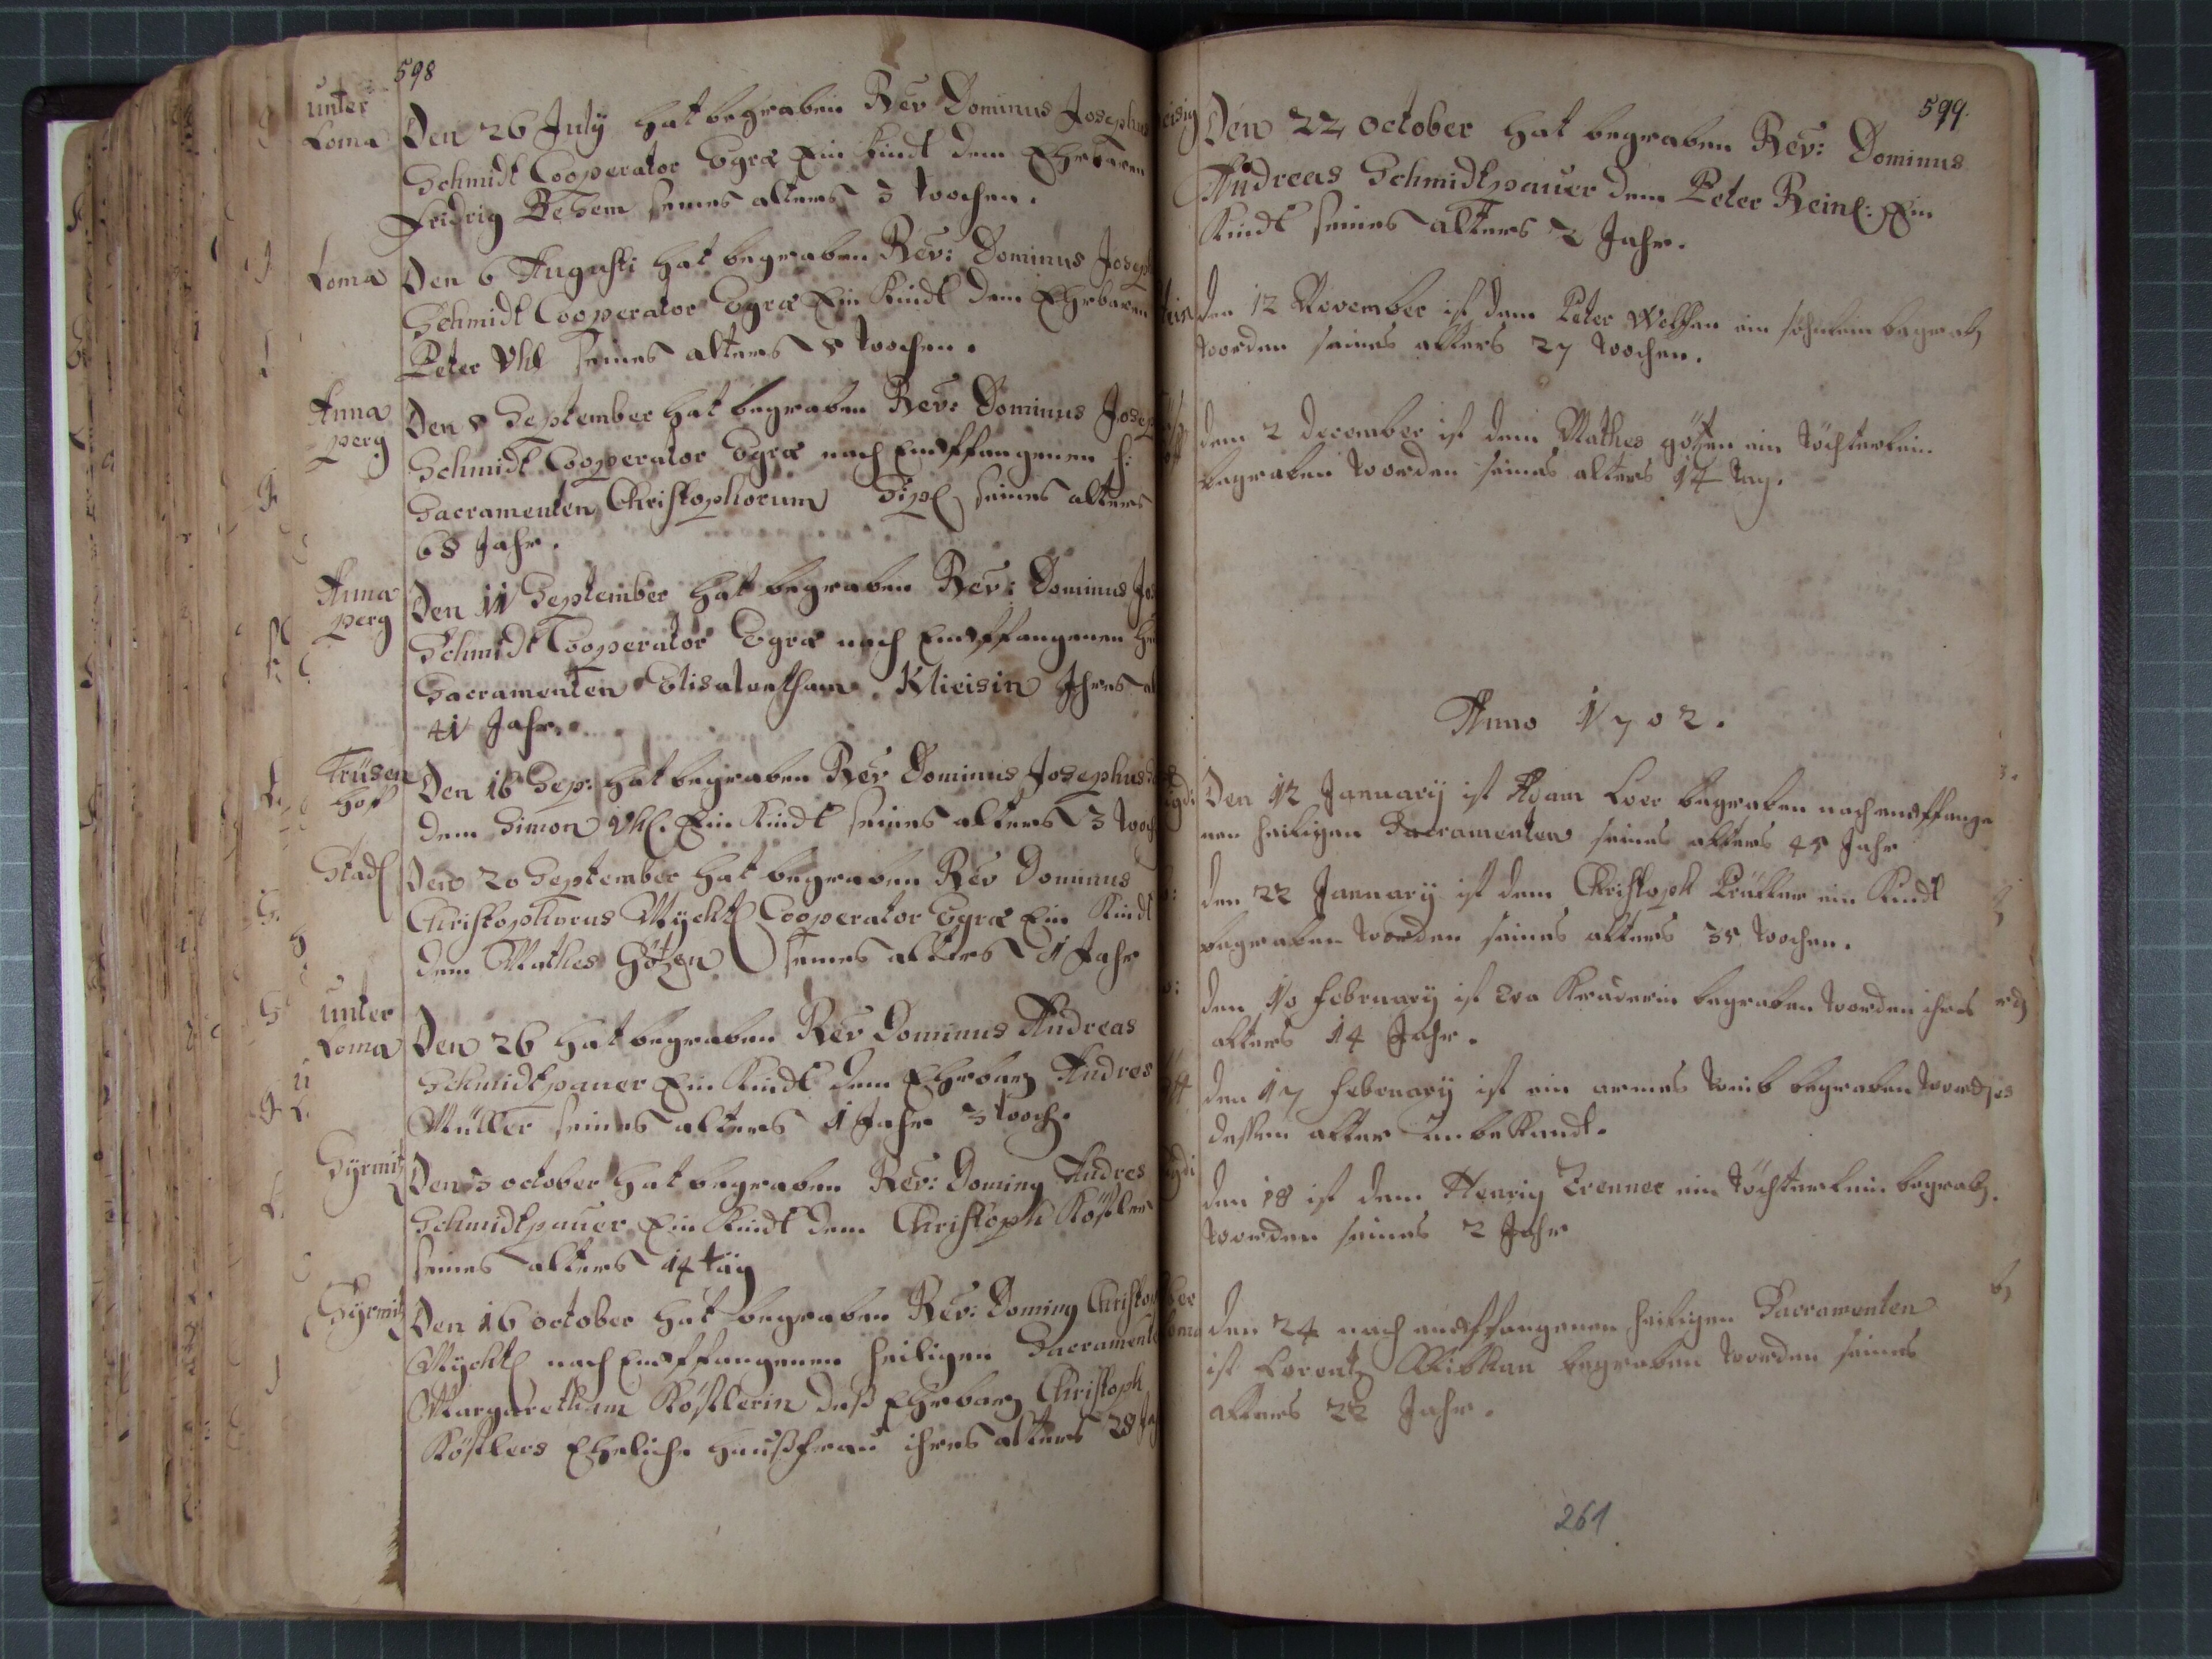 598
unter
Loma
Den 26 July hat begraben Rev Dominus Josephus
Schmidt Cooperator Egræ Ein Kindt dem Ehrbaren
Fridrig Behem seines alters 3 wochen.
Loma
Den 6 Augusti hat begraben Rev: Dominus Joseph
Schmidt Cooperator Egræ Ein Kindt dem Ehrbaren
Peter Vhl seines alters 8 wochen.
Anna
perg
Den 8 September hat begraben Rev: Dominus Josep
Schmidt Cooperator Egræ nach Empffangenen h:
Sacramenten Christophorum seines alters
68 Jahr.
Anna
perg
Den 11 September hat begraben Rev: Dominus Jos
Schmidt Cooperator Egræ nach Empffangenen
Sacramenten Elisabetham Klieisin Ihres
41 Jahr.
Trüsen
hoff
Den 16 Sep: hat begraben Rev Dominus Josephus
dem Simon Vhl. Ein Kindt seines alters 3 woch
Stadl
Den 20 September hat begraben Rev Dominus
Christophorus Myehtl Cooperator Egræ Ein Kindt
dem Mathes Götzen seines alters 1 Jahr
unter
Loma
Den 26 hat begraben Rev Dominus Andreas
Schmidtpauer Ein Kindt dem Ehrbarn Andres
Müller seines alters 1 Jahr 3 woch.
Syrmitz
Den 3 october hat begraben Rev: Dominus Andres
Schmidtpauer Ein Kindt dem Christoph Köstler
seines alters 14 täg
Syrmitz
Den 16 october hat begraben Rev: Dominus Christo
Myehtl nach Empffangenen heiligen Sacramente
Margaretham Köstlerin deß Ehrbarn Christoph
Köstlers Eheliche haußfrau ihres alters 28 Ja
599.
Den 22 october hat begraben Rev: Dominus
Andreas Schmidtpauer dem Peter Reinl: Ein
Kindt seines alters 2 Jahr.
den 12 November ist dem Peter Wolffen ein söhnlein begrabn
worden seines alters 27 wochen.
dem 2 December ist dem Mathes götzen ein töchterlein
begraben worden seines alters 14 tag.
Anno 1702.
Den 12 January ist Adam Loer begraben nach empffange
nen heiligen Sacramenten seines alters 45 Jahr
den 22 January ist dem Christoph ein Kindt
begraben worden seines alters 35 wochen.
den 10 February ist Eva begraben worden ihres
alters 14 Jahr.
den 17 February ist ein armes weib begraben wordn
dessen alter unbekandt.
den 18 ist dem Henrig Trenner ein töchterlein begrabn.
worden seines 2 Jahr
den 24 nach empffangenen heiligen Sacramenten
ist Lorentz begraben worden seines
alters 22 Jahr.
261